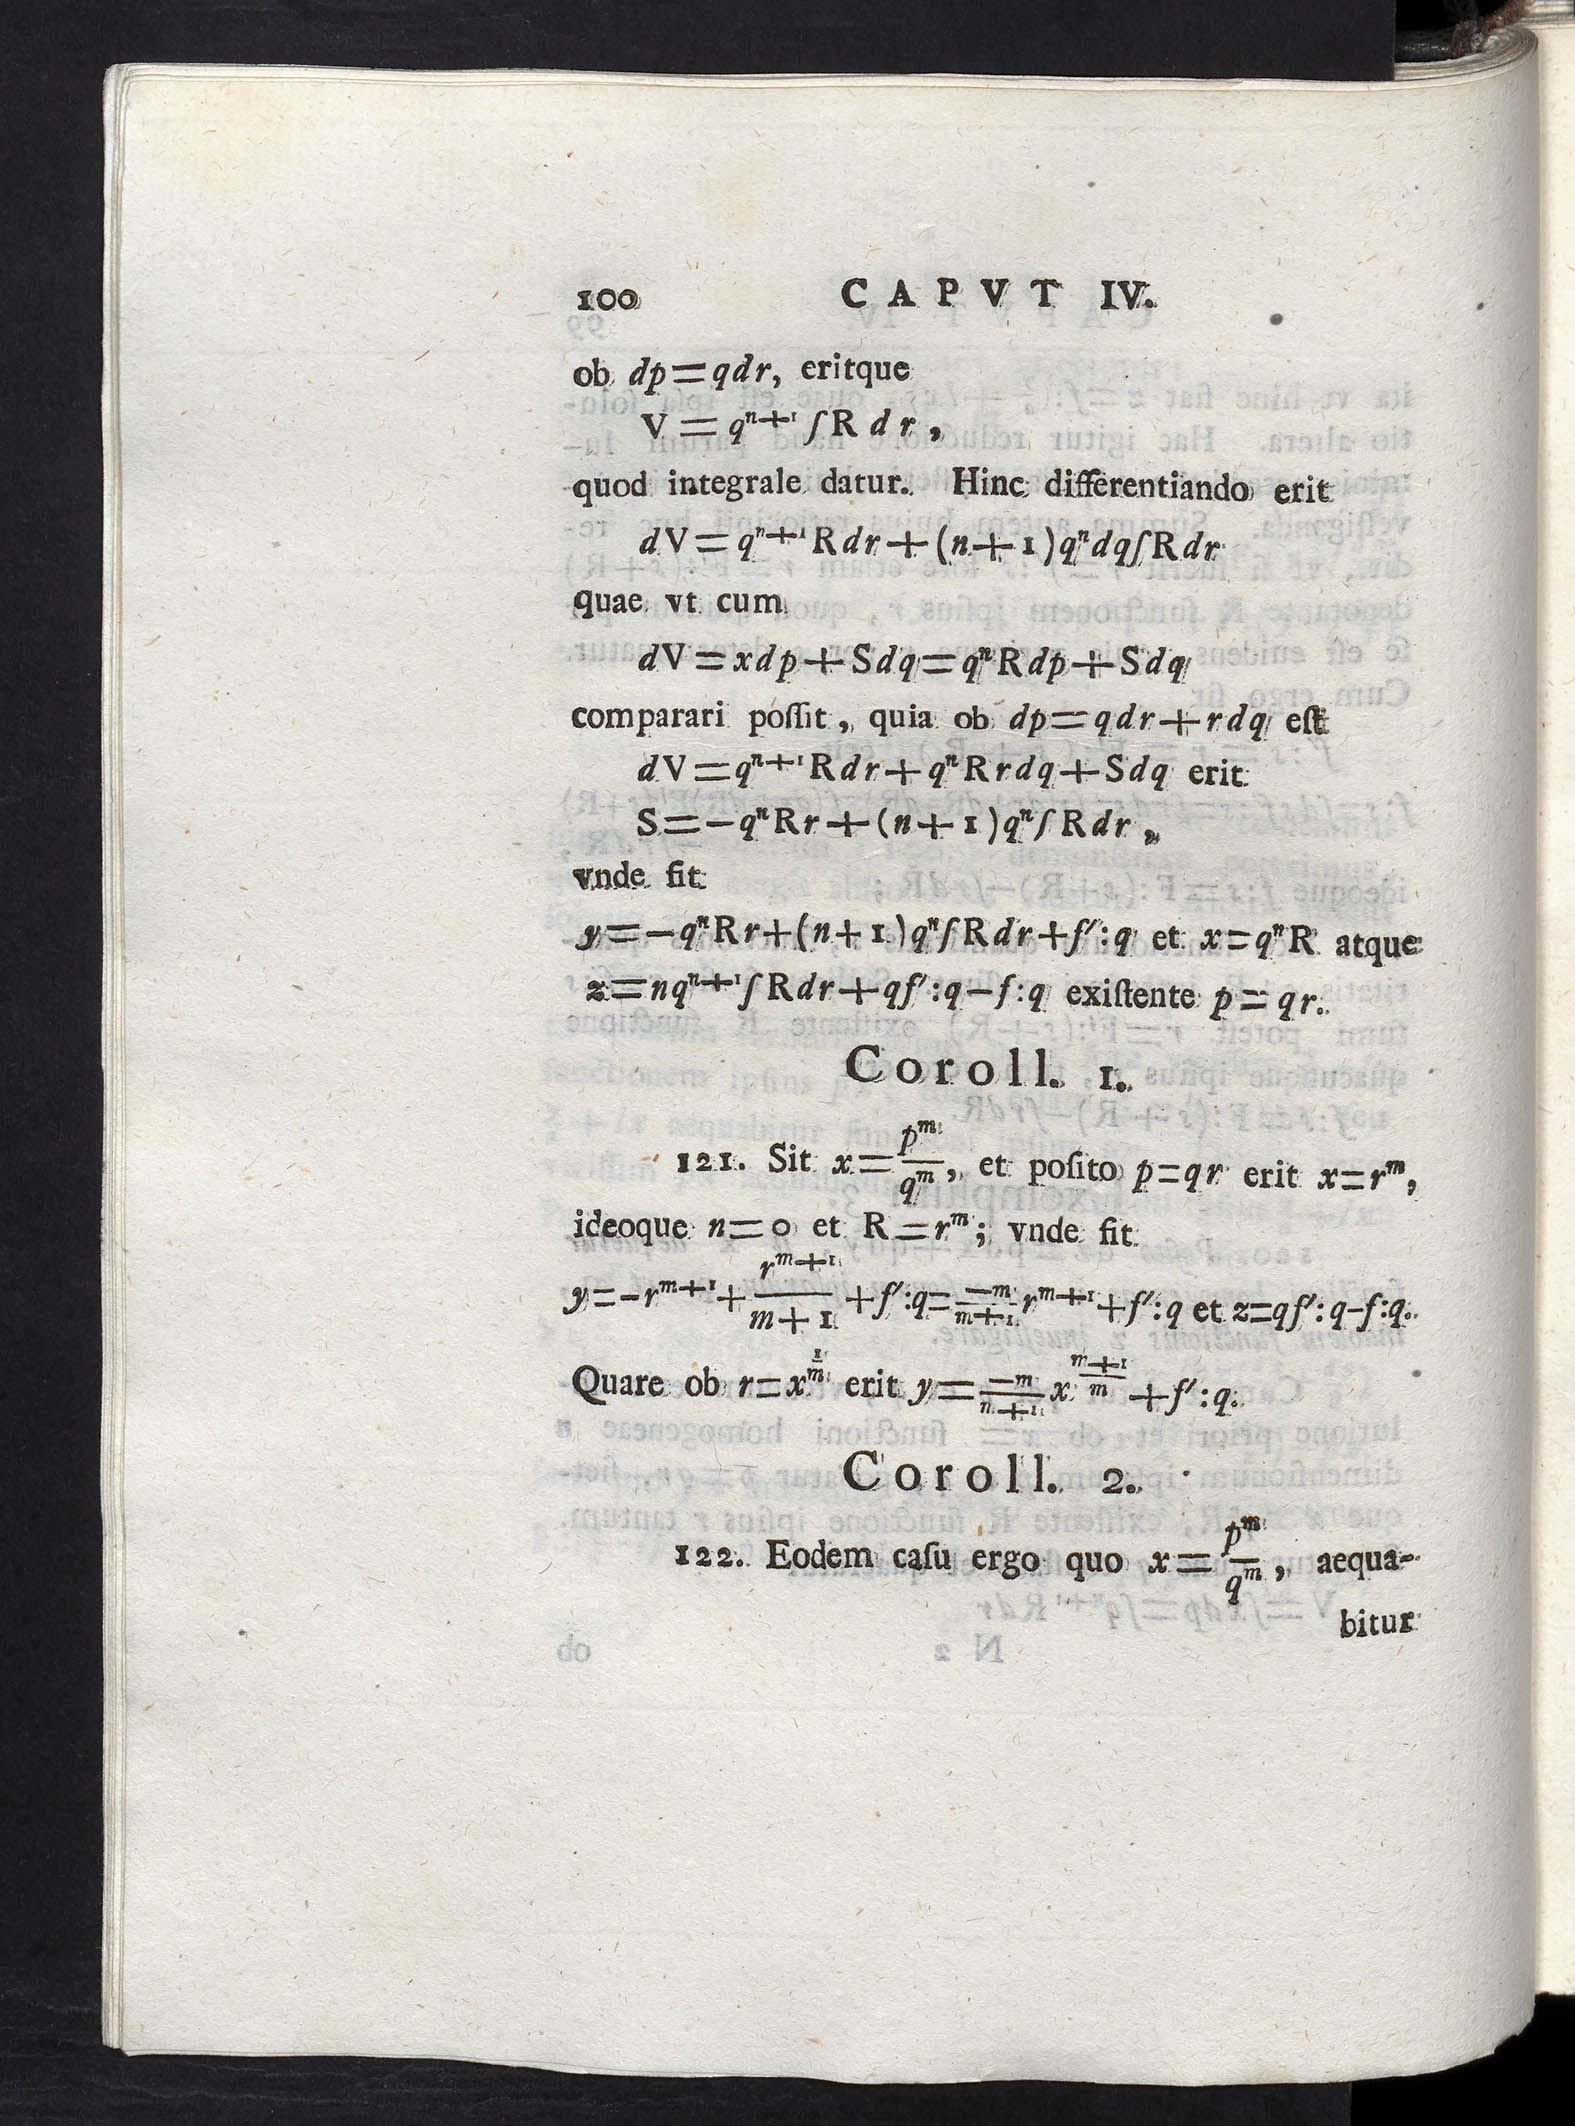 100 CAPVT IV.
ob dp=qdr, eritque
V=qⁿ⁺¹∫R dr,
quod integrale datur. Hinc differentiando erit
dV=qⁿ⁺¹Rdr+(n+1)qⁿdq∫Rdr
quae vt cum
dV=xdp+Sdq=qⁿRdp+Sdq
comparari poſſit, quia ob dp=qdr+rdq eſt
dV=qⁿ⁺¹Rdr+qⁿRrdq+Sdq erit
S=-qⁿRr+(n+1)qⁿ∫Rdr,
vnde fit
y=-qⁿRr+(n+1)qⁿ∫Rdr+f′:q et x=qⁿR atque
z=nqⁿ⁺¹∫Rdr+qf′:q-f:q exiſtente p=qr.
Coroll. 1.
121. Sit x=pᵐ/qᵐ, et poſito p=qr erit x=rᵐ,
ideoque n=0 et R=rᵐ; vnde fit
y=-rᵐ⁺¹+rᵐ⁺¹/(m+1)+f′:q=-m/(m+1) rᵐ⁺¹+f′:q et z=qf′:q-f:q.
Quare ob r=x^(1/m) erit y=-m/(n+1) x^((m+1)/m)+f′:q.
Coroll. 2.
122. Eodem caſu ergo quo x=pᵐ/qᵐ, aequa-
bitur